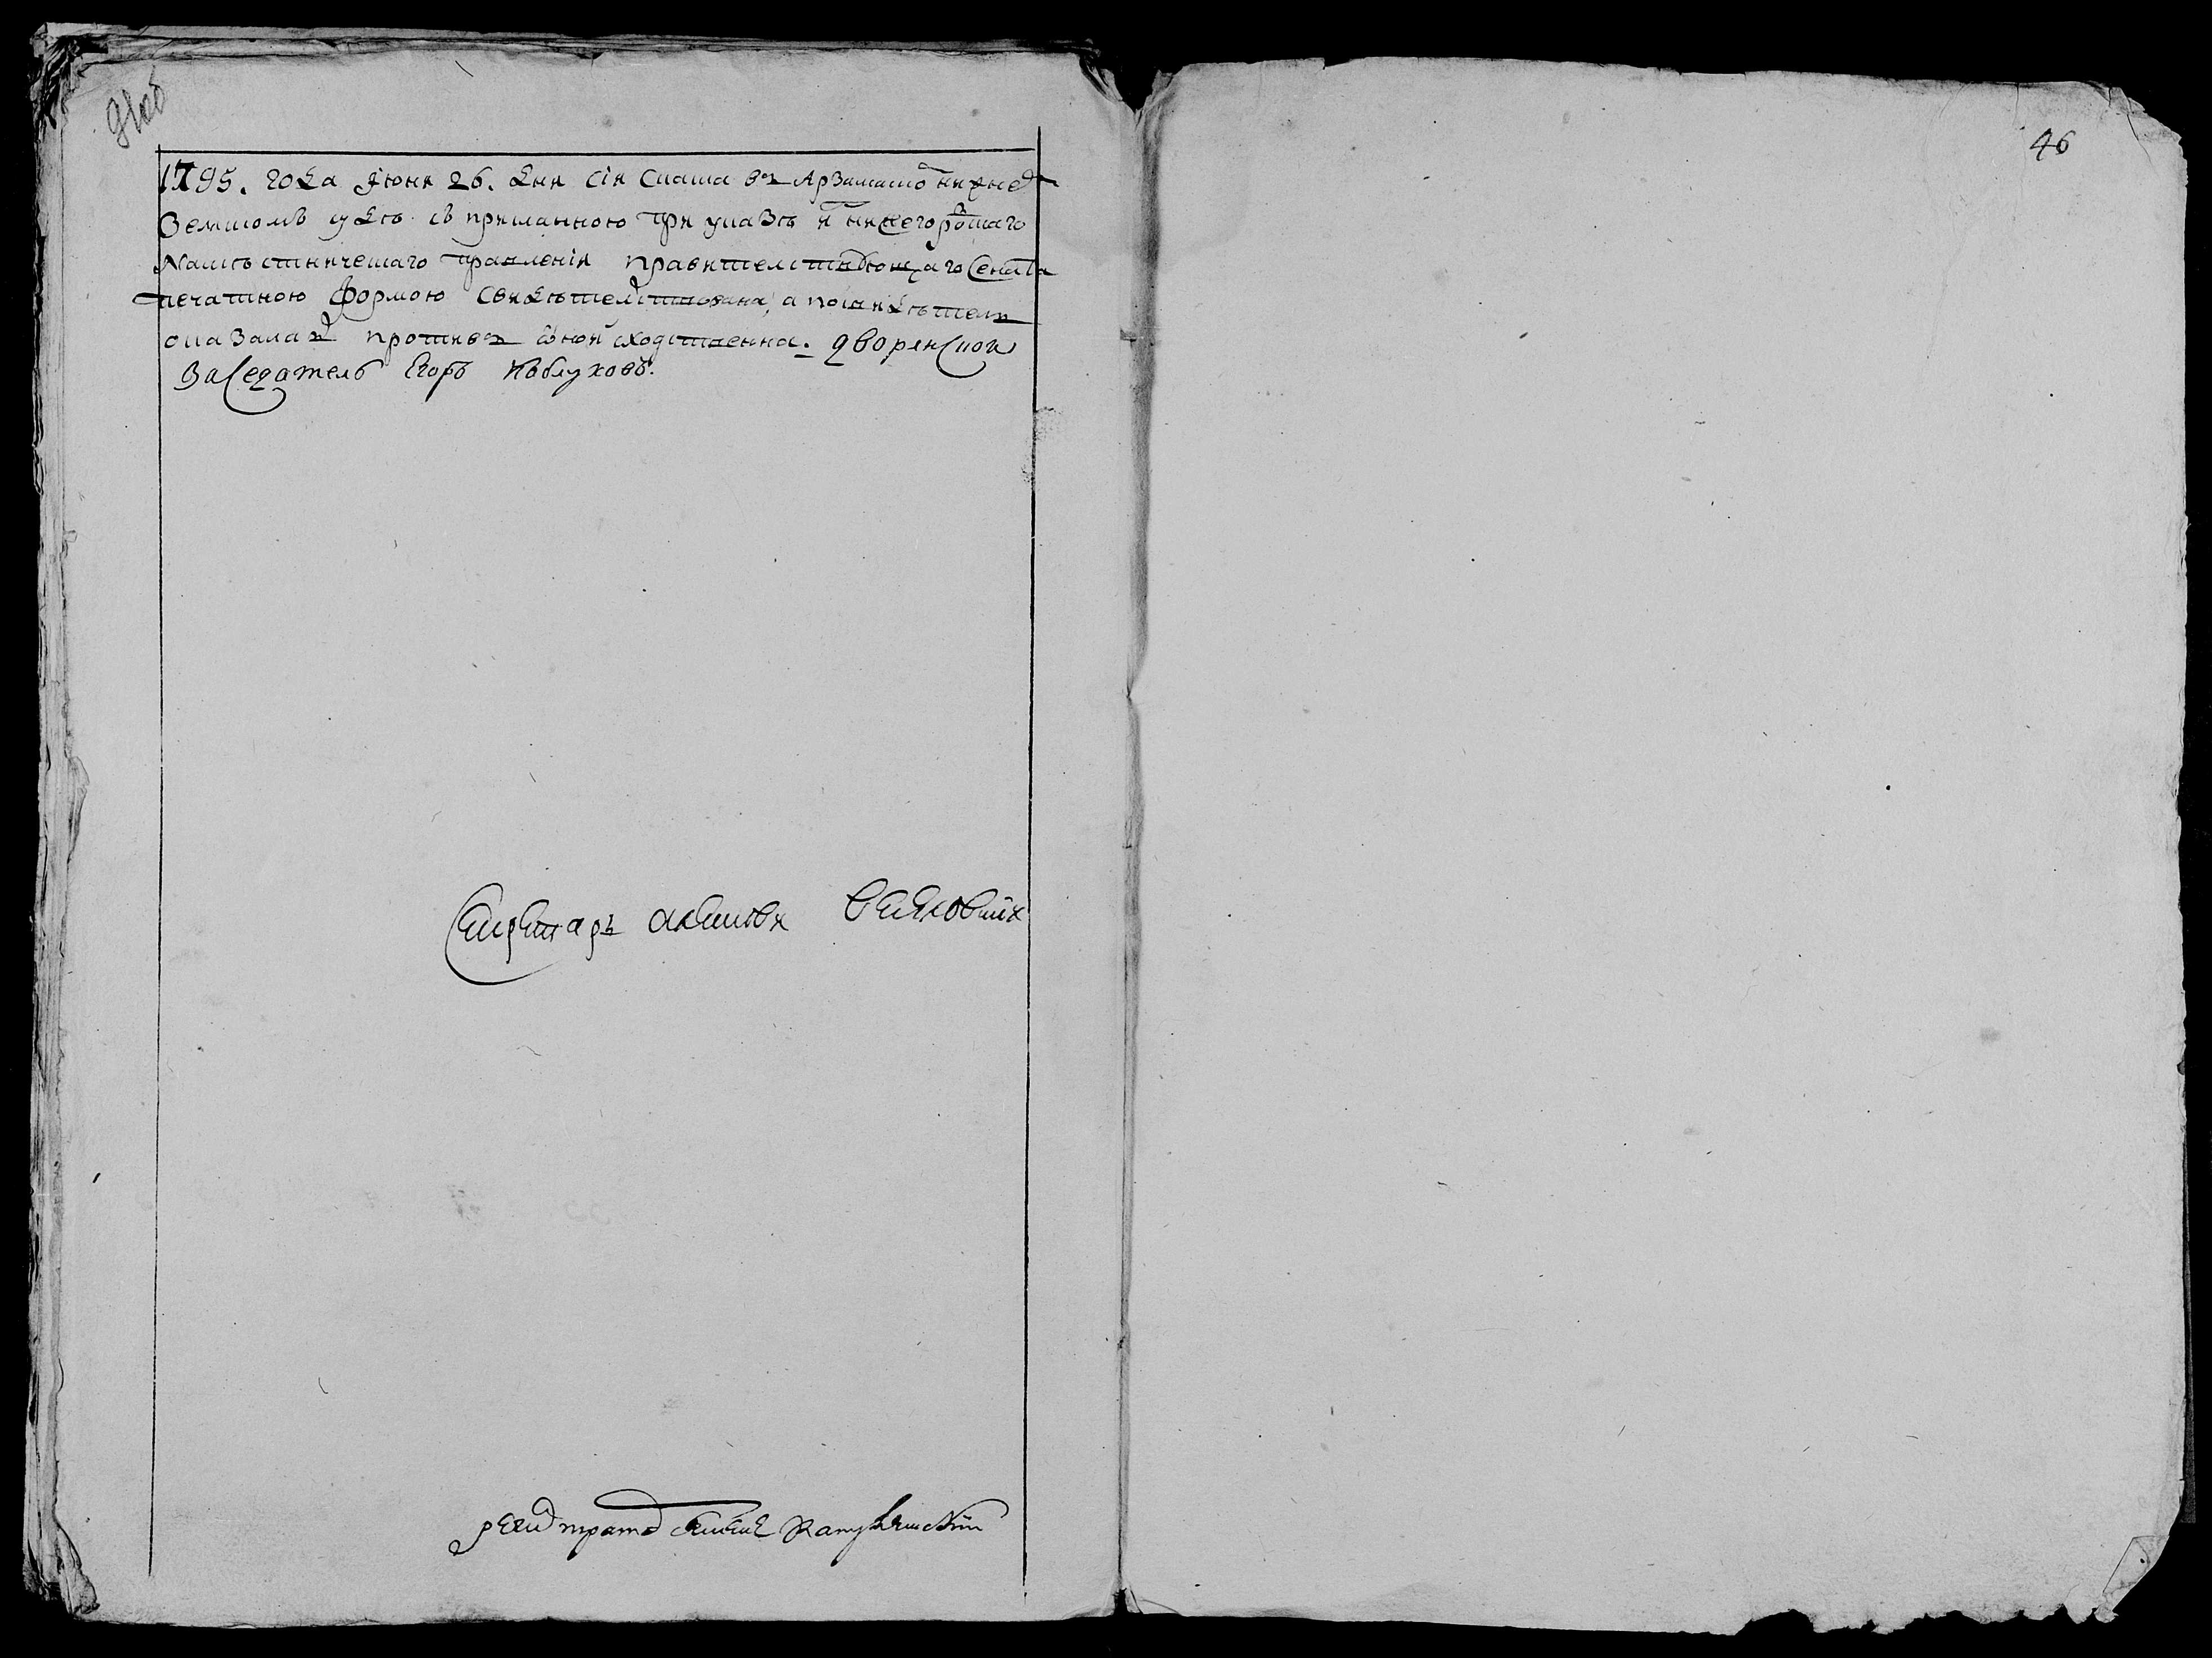 46
1795. года июня 26. дня сия скаска въ Арзамаско нижнед
Земскомъ суде съ присланною при указе и нижегороцкаго
Наместническаго правления правителствующаго Сената
печатною формою свидетелствована, а по свидетели
оказалас противъ оной сходственна. дворенской
Заседатель Егоръ Каблуховъ.
Секретарь алексей
регистратор